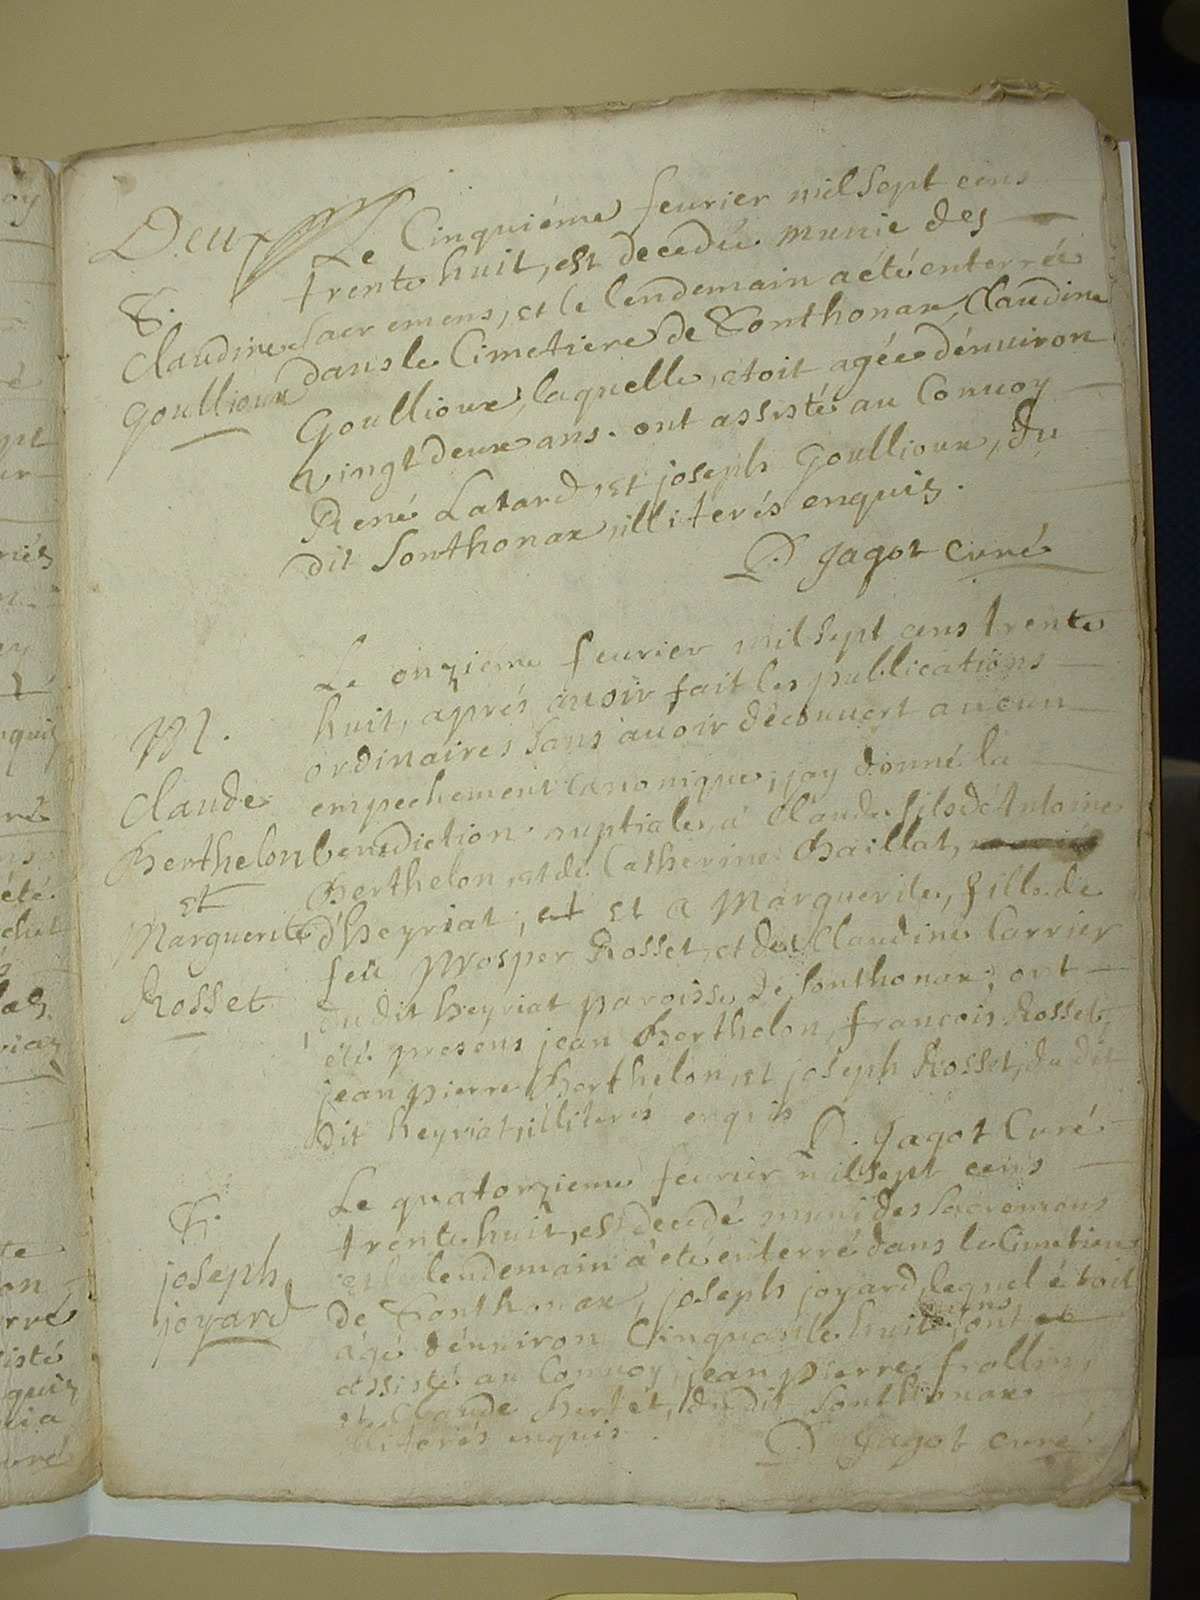 Deux
Le Cinquiéme feurier mil sept cens
trente huit, est decedée munie des
S.
Claudine
Goullioux
sacremens, et le lendemain a été enterrée
dans le Cimetiere de Sonthonax, Claudine
Goullioux, laquelle, etoit agée dénuiron
vingt deux ans. ont assisté au Conuoy
René Latard, et joseph Goullioux, du
dit Sonthonax, illiterés enquis.
P. Jagot Curé
Le onzieme feurier mil sept cens trente
huit, aprés auoir fait les publications
ordinaires sans auoir découuert aucun
M.
Claude
Berthelon
et
Marguerite
Rosset
empechement canonique, jay donné la
benediction nuptiale, a Claude fils dé Antoine
Berthelon, et de Catherine Baillat,
d'heyriat, et et a Marguerite, fille de
feû Prosper Rosset, et de Claudine Carrier
du dit heyriat paroisse de Sonthonax; ont
été presens jean Berthelon, francois Rosset,
jean pierre Berthelon, et joseph Rosset, du dit
dit heyriat, illiterés enquis
P. Jagot Curé
Le quatorzieme feurier mil sept cens
trente huit, est decedé muni des sacremens
S.
joseph
joyard
et le lendemain a été enterré dans le Cimetiere
de Sonthonax, joseph joyard, lequel étoit
âgé dénuiron Cinquante huit ans, ont
assisté au Conuoy, jean pierre frallin,
et Claude Bertét, du dit Sonthonax
illiterés enquis.
P. Jagot curé.